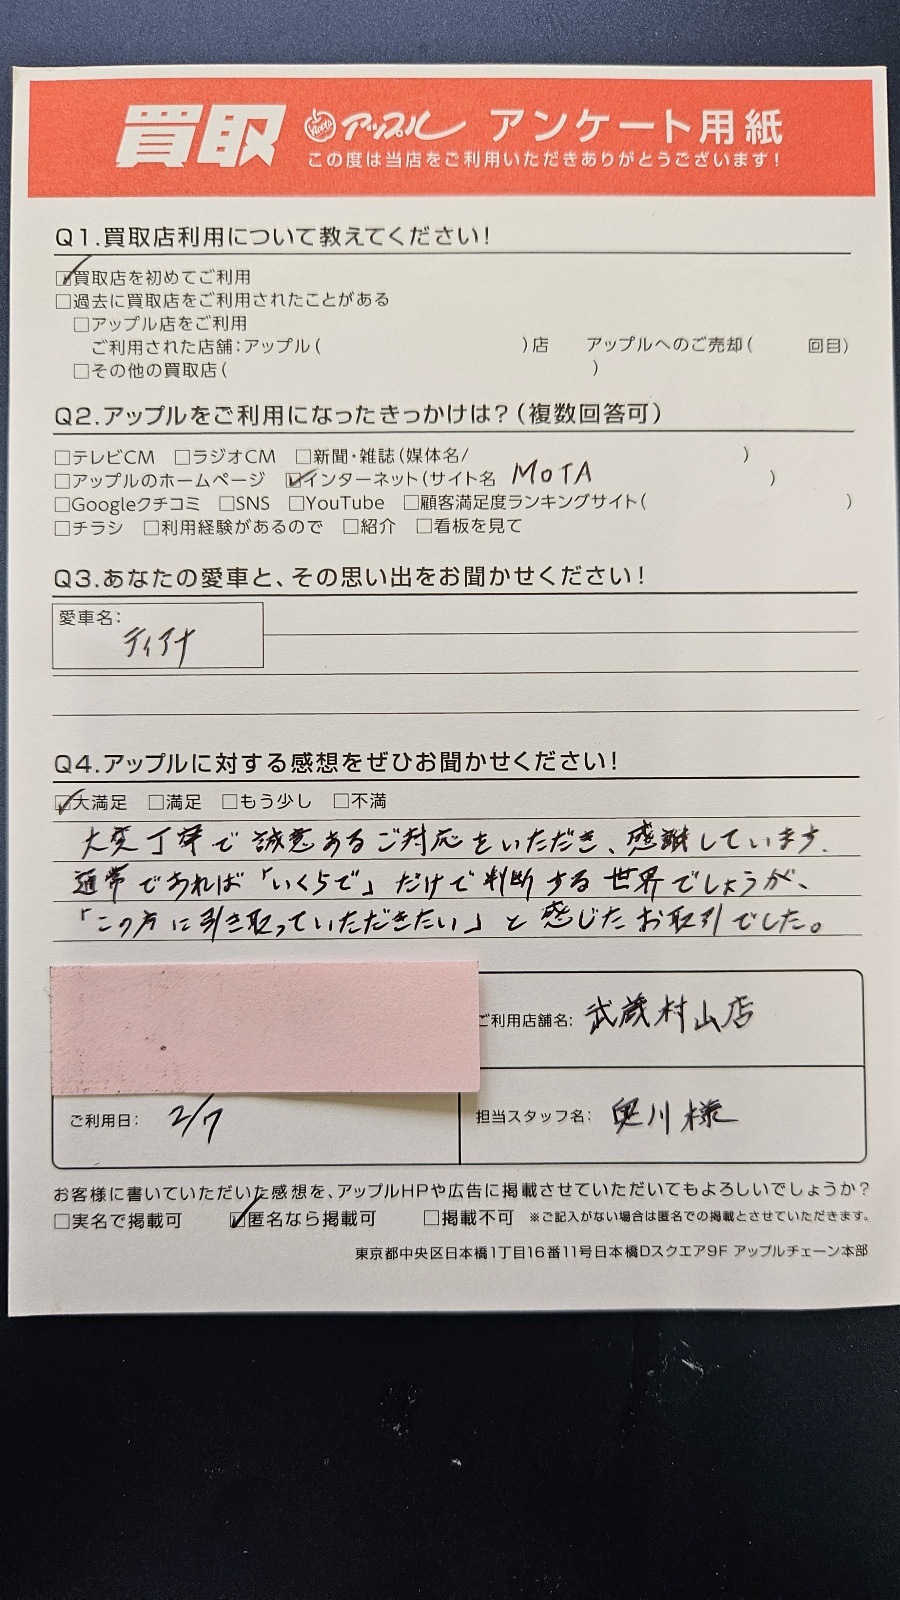 買取 Apple アップル アンケート用紙
この度は当店をご利用いただきありがとうございます!
Q1.買取店利用について教えてください!
☑買取店を初めてご利用
□過去に買取店をご利用されたことがある
□アップル店をご利用
ご利用された店舗:アップル( )店 アップルへのご売却( 回目)
□その他の買取店( )
Q2.アップルをご利用になったきっかけは?(複数回答可)
□テレビCM □ラジオCM □新聞・雑誌(媒体名/ )
□アップルのホームページ ☑インターネット(サイト名 MOTA )
□Googleクチコミ □SNS □YouTube □顧客満足度ランキングサイト( )
□チラシ □利用経験があるので □紹介 □看板を見て
Q3.あなたの愛車と、その思い出をお聞かせください!
愛車名:
ティアナ
Q4.アップルに対する感想をぜひお聞かせください!
☑大満足 □満足 □もう少し □不満
大変丁寧で誠意あるご対応をいただき、感謝しています.
通常であれば「いくらで」だけで判断する世界でしょうが、
「この方に引き取っていただきたい」と感じたお取引でした。
ご利用店舗名: 武蔵村山店
ご利用日: 2/7 担当スタッフ名: 奥川様
お客様に書いていただいた感想を、アップルHPや広告に掲載させていただいてもよろしいでしょうか?
□実名で掲載可 ☑匿名なら掲載可 □掲載不可 ※ご記入がない場合は匿名での掲載とさせていただきます。
東京都中央区日本橋1丁目16番11号日本橋Dスクエア9F アップルチェーン本部